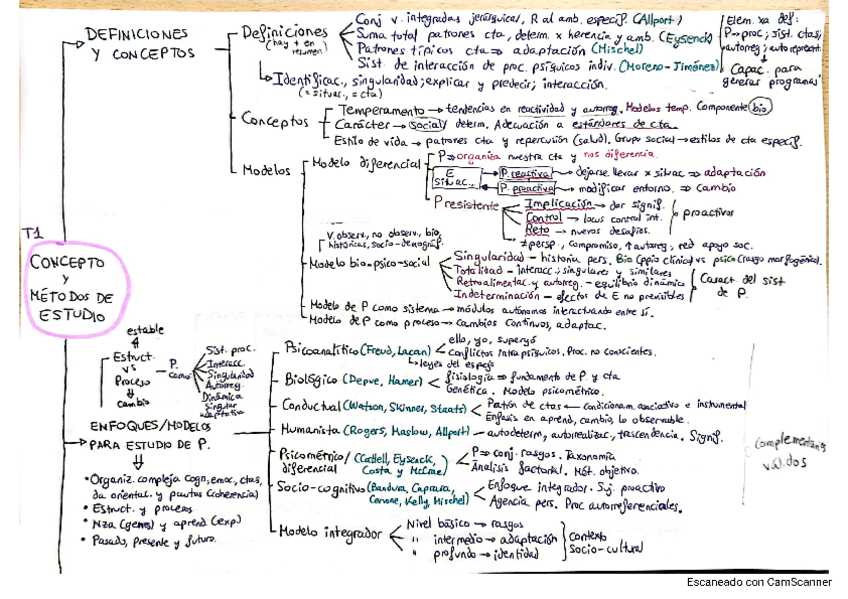 T1
CONCEPTO
Y
MÉTODOS DE
ESTUDIO
DEFINICIONES
Y CONCEPTOS
Definiciones
(hay + en resumen)
Conj v. integradas jerárquicas, R al amb. especif. (Allport)
Suma total patrones cta, determ. x herencia y amb. (Eysenck)
Patrones típicos cta ⇒ adaptación (Mischel)
Sist. de interacción de proc. psíquicos indiv. (Moreno-Jiménez)
Elem. xa def:
P→proc; sist. ctas;
autoreg; autorepresent.
Capac. para
generar programas
Identificac., singularidad; explicar y predecir; interacción.
(= situac., = cta)
Conceptos
Temperamento → tendencias en reactividad y autoreg. Modelos temp. Componente bio
Carácter → social y determ. Adecuación a estándares de cta.
Estilo de vida → patrones cta y repercusión (salud). Grupo social → estilos de cta especif.
Modelos
Modelo diferencial
P ⇒ organiza nuestra cta y nos diferencia.
E
situac..
P. reactiva → dejarse llevar x situac ⇒ adaptación
P. proactiva → modificar entorno. ⇒ Cambio
Presistente
Implicación → dar signif.
Control → locus control int.
Reto → nuevos desafíos.
proactivos
≠ persp., compromiso, ↑ autoreg, red apoyo soc.
V. observ, no observ, bio,
históricas, socio-demográf.
Modelo bio-psico-social
Singularidad - historia pers. Bio (ppio clínica) vs psico (rasgo morfogénico).
Totalitad - interacc; singulares y similares
Retroalimentac. y autoreg. - equilibrio dinámico
Indeterminación - efectos de E no previsibles
Caract. del sist
de P.
Modelo de P como sistema → módulos autónomos interactuando entre sí.
Modelo de P como proceso → cambios continuos, adaptac.
estable
Estruct.
vs
Proceso
cambio
P.
como
Sist. proc.
Interacc.
Singularidad
Autoreg.
Dinámica
Singular
adaptativa
ENFOQUES/MODELOS
PARA ESTUDIO DE P.
• Organiz. compleja cogn, emoc, ctas,
da oriental. y pautas (coherencia)
• Estruct. y procesos
• Nza (genes) y aprend (exp)
• Pasado, presente y futuro.
Psicoanalítico (Freud, Lacan)
ello, yo, superyó
Conflictos intrapsíquicos. Proc. no conscientes.
leyes del espejo
Biológico (Depve, Hamer)
fisiología ⇒ fundamento de P. y cta
Genética. Modelo psicométrico.
Conductual (Watson, Skinner, Staats)
Patrón de ctas ← condicionam. asociativo e instrumental
Énfasis en aprend, cambio, lo observable.
Humanista (Rogers, Maslow, Allport) → autodeterm, autorrealizac, trascendencia. Signif.
Psicométrico/
diferencial
(Cattell, Eysenck,
Costa y McCrae)
P ⇒ conj. rasgos. Taxonomía
Análisis factorial. Mét. objetivo.
Socio-cognitivo (Bandura, Caprara,
Cervone, Kelly, Mischel)
Enfoque integrador. Suj. proactivo
Agencia pers. Proc autorreferenciales.
Modelo integrador
Nivel básico → rasgos
" intermedio → adaptación
" profundo → identidad
Contexto
Socio-cultural
complementarios
válidos
Escaneado con CamScanner